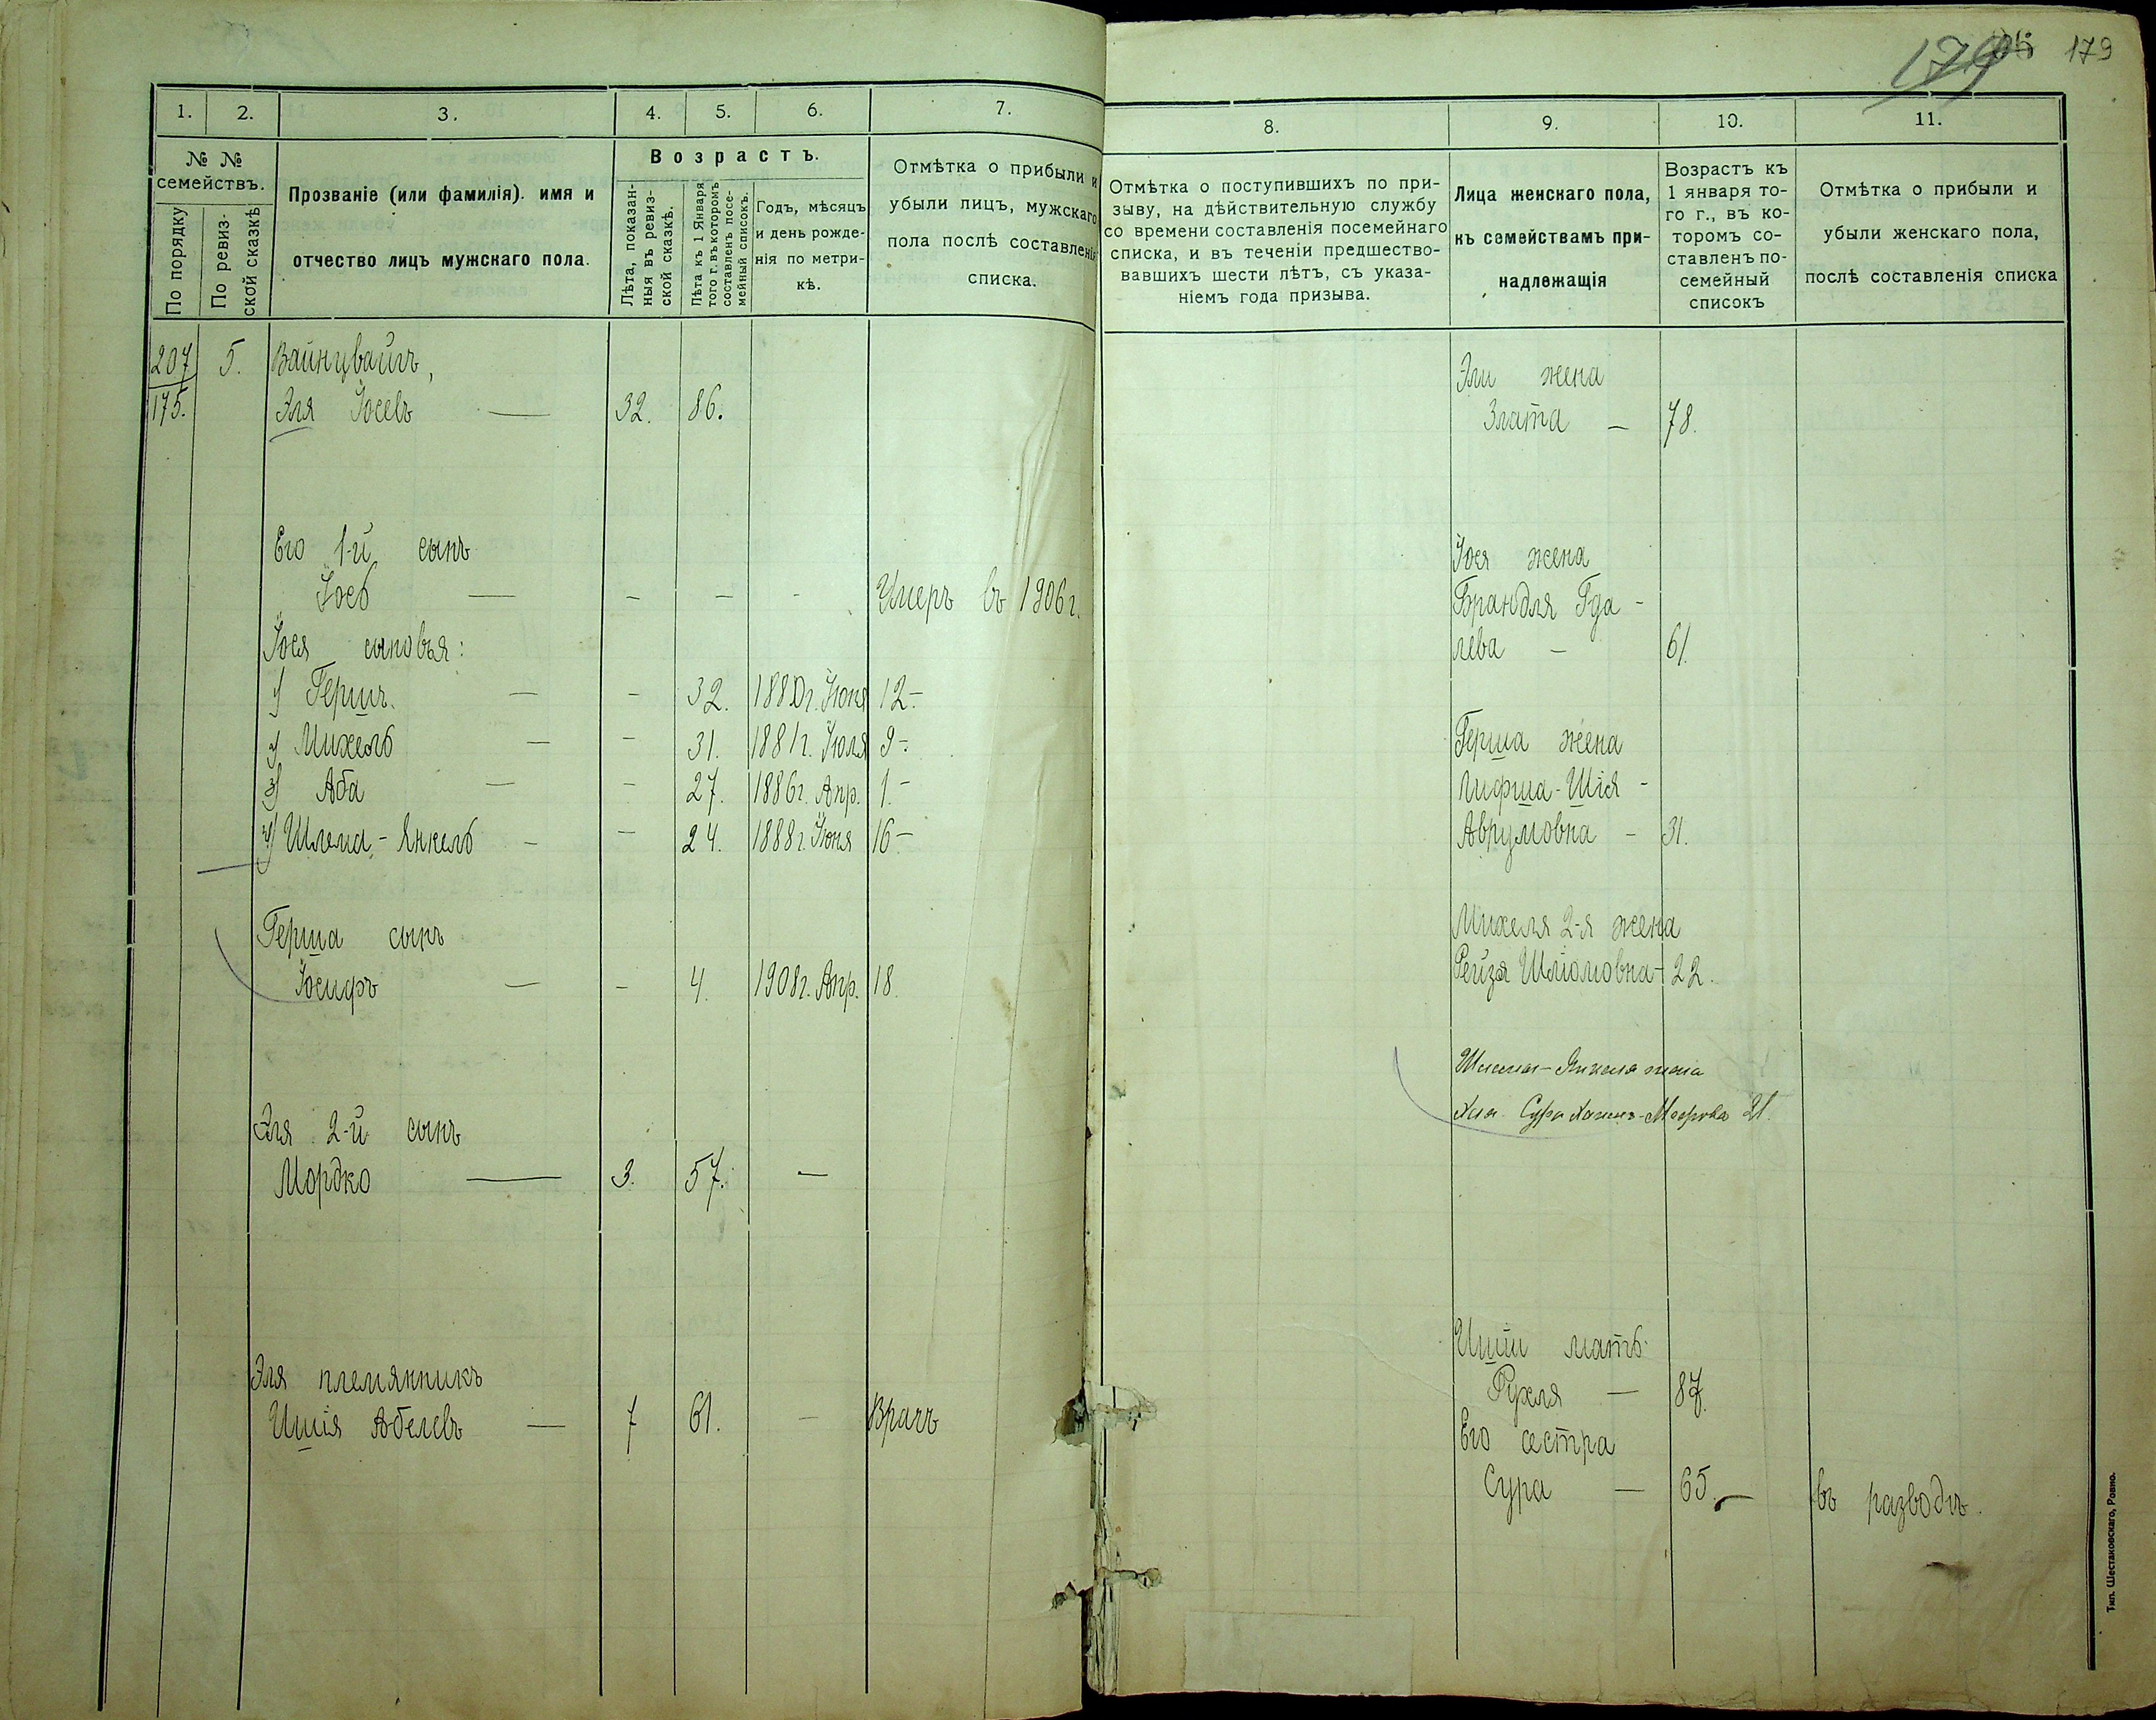 179 179
1. 2. 3. 4. 5. 6. 7.
№ № семействъ.
По порядку
По ревизской сказкѣ
Прозваніе (или фамилія). имя и
отчество лицъ мужскаго пола.
Возрастъ.
Лѣта, показан-
ныя въ ревиз-
ской сказкѣ.
Лѣта къ 1 Января
того г. въ которомъ
составленъ посе-
мейный списокъ.
Годъ, мѣсяцъ
и день рожде-
нія по метри-
кѣ.
Отмѣтка о прибыли и
убыли лицъ, мужскаго
пола послѣ составленія
списка.
207 5. Вайнцвайгъ,
175. Эля Іосевъ — 32. 86.
Его 1-й сынъ
Іось — - - - Умеръ въ 1906 г.
Іося сыновья:
1) Гершъ. — - 32. 1880 г. Іюня 12 -
2) Михель — - 31. 1881 г. Іюля 9 -
3) Аба — - 27. 1886 г. Апр. 1. -
4) Шлема - Янкель - - 24. 1888 г. Іюня 16 -
Герша сынъ
Іосифъ — - 4. 1908 г. Апр. 18.
Эля 2-й сынъ
Мордко — 3. 57. —
Эля племянникъ
Ишія Абелевъ — 7 61. — Врачъ
8. 9. 10. 11.
Отмѣтка о поступившихъ по при-
зыву, на дѣйствительную службу
со времени составленія посемейнаго
списка, и въ теченіи предшество-
вавшихъ шести лѣтъ, съ указа-
ніемъ года призыва.
Лица женскаго пола,
къ семействамъ при-
надлежащія
Возрастъ къ
1 января то-
го г., въ ко-
торомъ со-
ставленъ по-
семейный
списокъ
Отмѣтка о прибыли и
убыли женскаго пола,
послѣ составленія списка
Эли жена
Злата - 78.
Іося жена
Брандля Гда -
лева - 61.
Герша жена
-Шія -
Аврумовна - 31.
Михеля 2-я жена
Рейзя Шліомовна - 22.
Шлема - Янкеля жена
Сура Мееровна 21.
Ишіи мать
Рухля — 87.
Его сестра
Сура — 65. — въ разводѣ.
Тип. Шестаковскаго, Ровно.